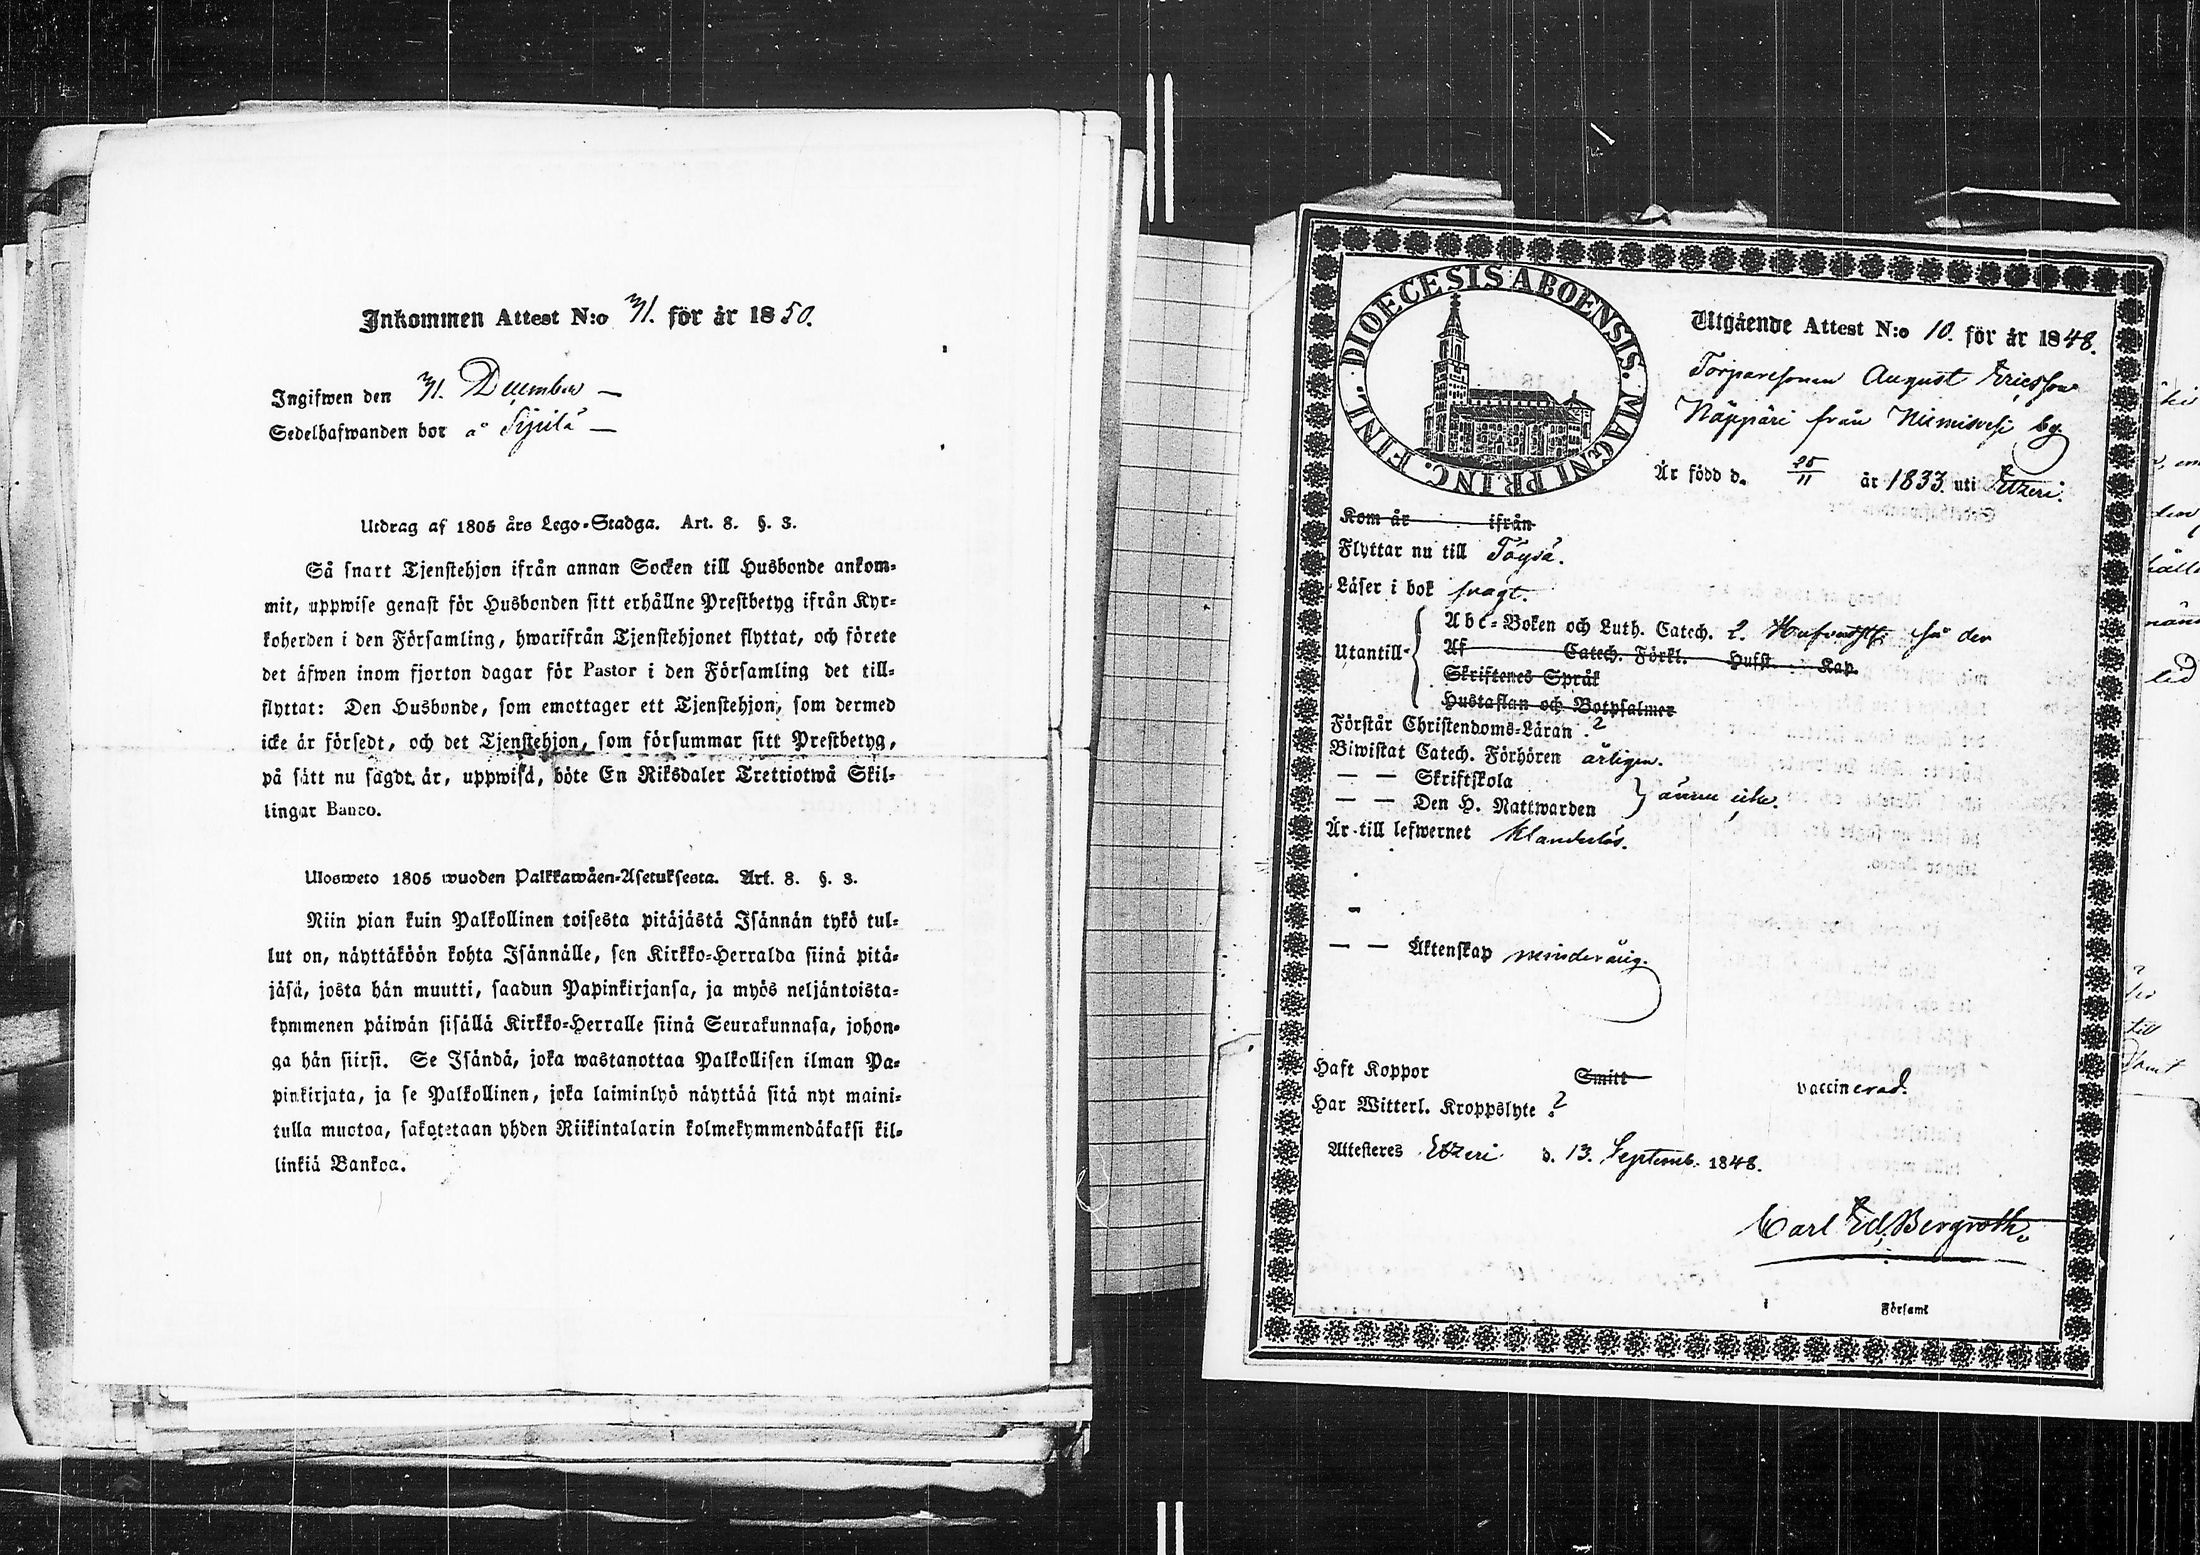 Inkommen Attest N:o 31. för år 1850.
Ingifwen den 31. December —
Sedelhafwanden bor å Sipilä —
Utdrag af 1805 års Lego-Stadga. Art. 8. §. 3.
Så snart Tjenstehjon ifrån annan Socken till Husbonde ankom-
mit, uppwise genast för Husbonden sitt erhållne Prestbetyg ifrån Kyr-
koherden i den Församling, hwarifrån Tjenstehjonet flyttat, och förete
det äfwen inom fjorton dagar för Pastor i den Församling det till-
flyttat: Den Husbonde, som emottager ett Tjenstehjon, som dermed
icke är försedt, och det Tjenstehjon, som försummar sitt Prestbetyg,
på sätt nu sagdt är, uppwisa, böte En Riksdaler Trettiotwå Skil-
lingar Banco.
Ulosweto 1805 wuoden Palkkawäen-Asetuksesta. Art. 8. §. 3.
Niin pian kuin Palkollinen toisesta pitäjästä Isännän tykö tul-
lut on, näyttäköön kohta Isännälle, sen Kirkko-Herralda siinä pitä-
jäsä, josta hän muutti, saadun Papinkirjansa, ja myös neljäntoista-
kymmenen päiwän sisällä Kirkko-Herralle siinä Seurakunnasa, johon-
ga hän siirsi. Se Isändä, joka wastanottaa Palkollisen ilman Pa-
pinkirjata, ja se Palkollinen, joka laiminlyö näyttää sitä nyt maini-
tulla muotoa, sakotetaan yhden Riikintalarin kolmekymmendäkaksi kil-
linkiä Bankoa.
FINL. DIOECESIS ABOENSIS. MAGNI PRINC.
Utgående Attest N:o 10. för år 1848.
Torparesonen August Ericsson
Näppäri från Niemisvesi by
Är född d. 25/11 år 1833. uti Etzeri.
Kom år ifrån
Flyttar nu till Töysä.
Läser i bok svagt.
Utantill
Abc-Boken och Luth. Catech. 2. Hufvudst: så der
Af Catech. Förkl. Hufst. Kap.
Skriftenes Språk
Hustaflan och Botpsalmer
Förstår Christendoms-Läran ?
Biwistat Catech. Förhören årligen.
— — Skriftskola
— — Den H. Nattwarden } ännu icke.
Är till lefwernet klanderlös.
— — Äktenskap minderårig.
Haft Koppor Smitt vaccinerad.
Har Witterl. Kroppslyte ?
Attesteres Etzeri d. 13. Septemb. 1848.
Carl Ed. Bergroth.
Församl